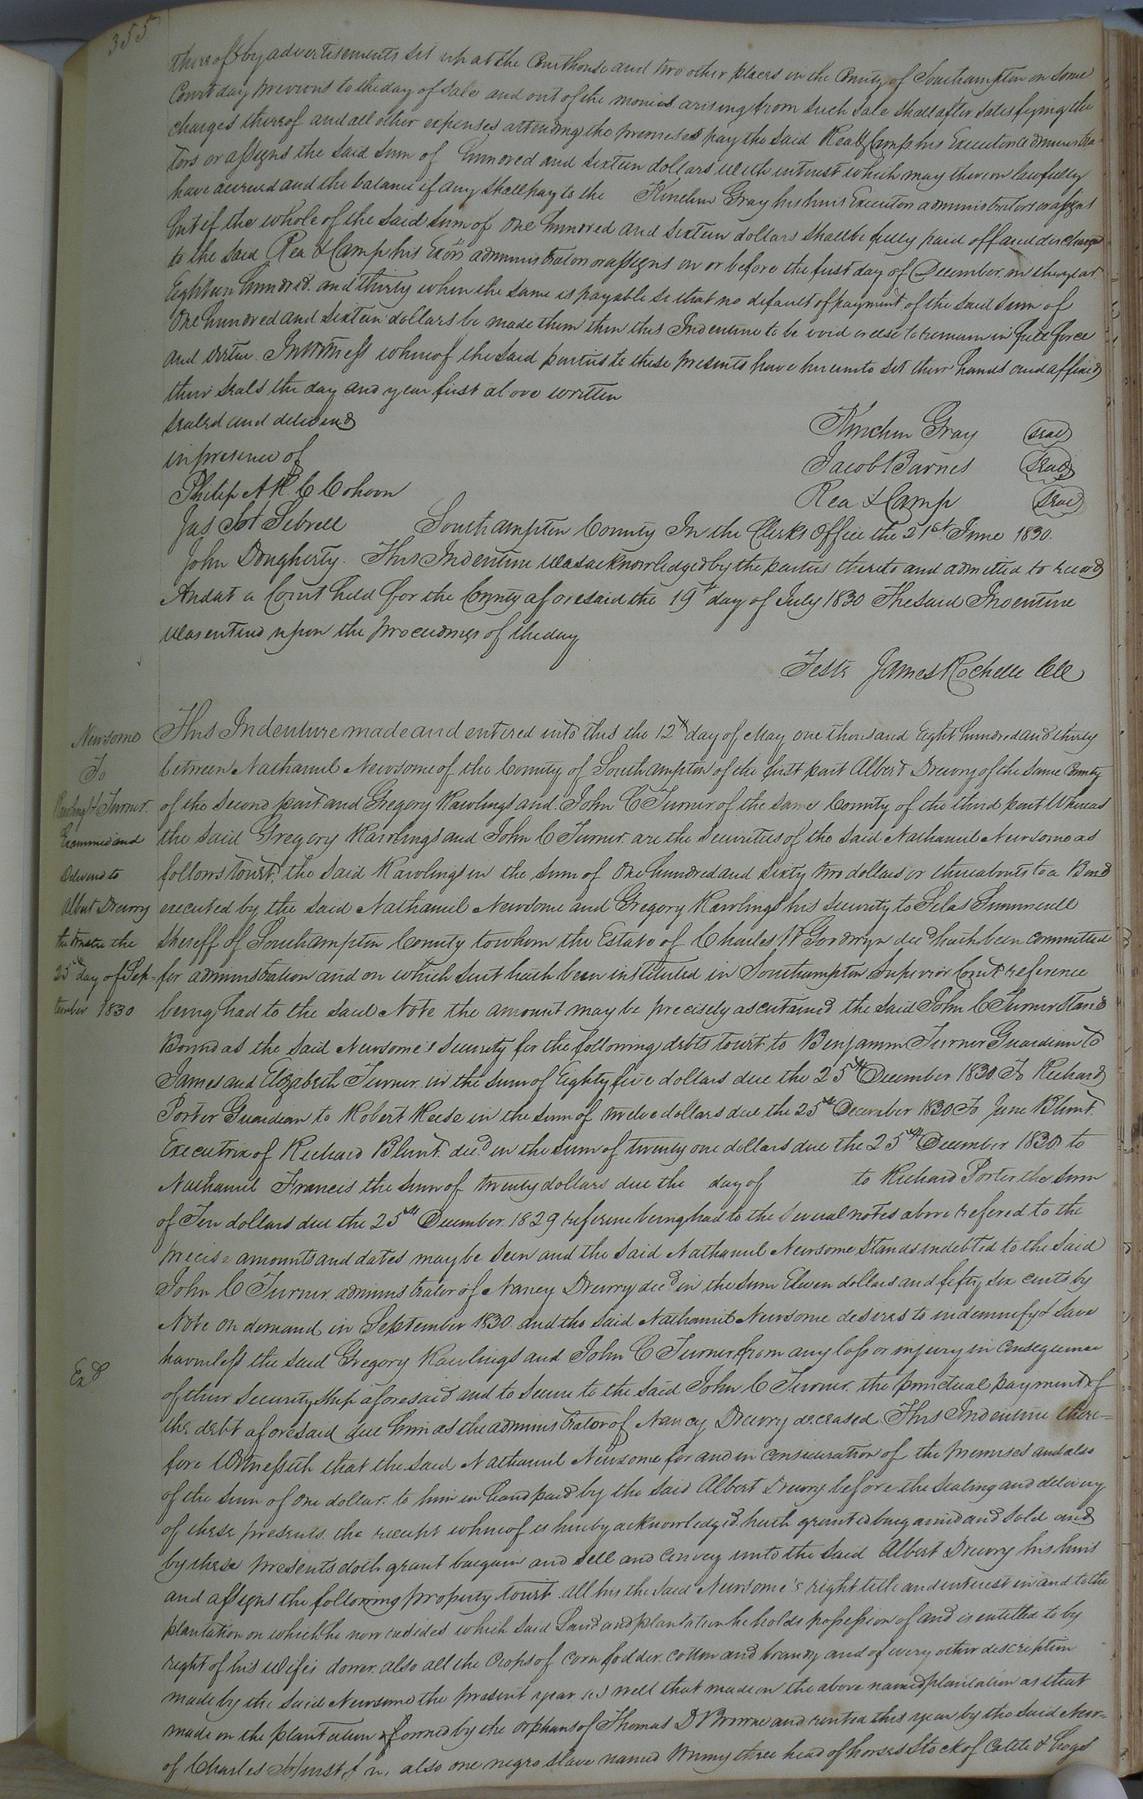 355
thereof by advertisements set up at the Courthouse and two other places in the County of Southampton on some
Court day previous to the day of sale and out of the monies arising from such sale shall after satisfying the
charges thereof and all other expenses attending the premises pay the said Rea & Camp his Executors administra-
tors or assigns the said sum of hundred and sixteen dollars with interest which may thereon lawfully
have accrued and the balance if any shall pay to the Kinchin Gray his heirs Executors administrators or assigns
but if the whole of the said sum of one hundred and sixteen dollars shall be fully paid off and discharged
to the said Rea & Camp his Exors administrators or assigns on or before the first day of December in the year
Eighteen hundred and thirty when the same is payable so that no default of payment of the said sum of
One hundred and sixteen dollars be made them then this Indenture to be void or else to remain in full force
and virtue. In witness whereof the said parties to these presents have hereunto set their hands and affixed
their seals the day and year first above written
sealed and delivered
in presence of
Kinchin Gray (seal)
Jacob Barnes (seal)
Philip A R C Cohoon
Rea & Camp (seal)
Jas Sebrell Southampton County In the Clerks Office the 21st June 1830.
John Dougherty. This Indenture was acknowledged by the parties thereto and admitted to record
And at a Court held for the County aforesaid the 19th day of July 1830 The said Indenture
was entered upon the proceedings of the day
Teste James Rochelle CC
Newsome
To
Rawlings & Turner
Examined and
Delivered to
Albert Drewry
the trustee the
25th day of Sep-
tember 1830
This Indenture made and entered into this the 12th day of May one thousand Eight hundred and thirty
between Nathaniel Newsome of the County of Southampton of the first part Albert Drewry of the same County
of the second part and Gregory Rawlings and John C Turner of the same County of the third part Whereas
the said Gregory Rawlings and John C Turner are the securities of the said Nathaniel Newsome as
follows towit, the said Rawlings in the sum of One hundred and sixty two dollars or thereabouts to a Bond
executed by the said Nathaniel Newsome and Gregory Rawlings his security to Silas Summerell
shereff of Southampton County to whom the Estate of Charles W Goodwyn decd hath been committed
for administration and on which suit hath been instituted in Southampton Superior Court reference
being had to the said Note the amount may be precisely ascertained the said John C Turner stand
Bound as the said Newsome's security for the following debts towit: to Benjamin Turner Guardian to
James and Elizabeth Turner in the sum of Eighty five dollars due the 25th December 1830 To Richard
Porter Guardian to Robert Reese in the sum of twelve dollars due the 25th December 1830 To Jane Blunt
Executrix of Richard Blunt decd in the sum of twenty one dollars due the 25th December 1830 to
Nathaniel Francis the sum of twenty dollars due the day of to Richard Porter the sum
of Ten dollars due the 25th December 1829 reference being had to the several notes above refered to the
precise amounts and dates may be seen and the said Nathaniel Newsome stands indebted to the said
John C Turner administrator of Nancy Drewry decd in the sum Eleven dollars and fifty six cents by
Note on demand in September 1830 and the said Nathaniel Newsome desires to indemnify & save
harmless the said Gregory Rawlings and John C Turner from any loss or injury in consequence
Exd
of their securityship aforesaid and to secure to the said John C Turner the punctual payment of
the debt aforesaid due him as the administrator of Nancy Drewry deceased This Indenture there-
fore Witnesseth that the said Nathaniel Newsome for and in consideration of the premises and also
of the sum of one dollar to him in hand paid by the said Albert Drewry before the sealing and delivery
of these presents the receipt whereof is hereby acknowledged hath granted bargained and sold and
by these presents doth grant bargain and sell and convey unto the said Albert Drewry his heirs
and assigns the following property towit. All his the said Newsome's right title and interest in and to the
plantation on which he now resides which said Land and plantation he holds possession of and is entitled to by
right of his wifes dower. also all the Crops of corn fodder cotton and brandy and of every other description
made by the said Newsome the present year as well that made on the above named plantation as that
made on the plantation owned by the orphans of Thomas D Browne and rented this year by the said New-
of Charles also one negro slave named three head of horses Stock of Cattle & hogs